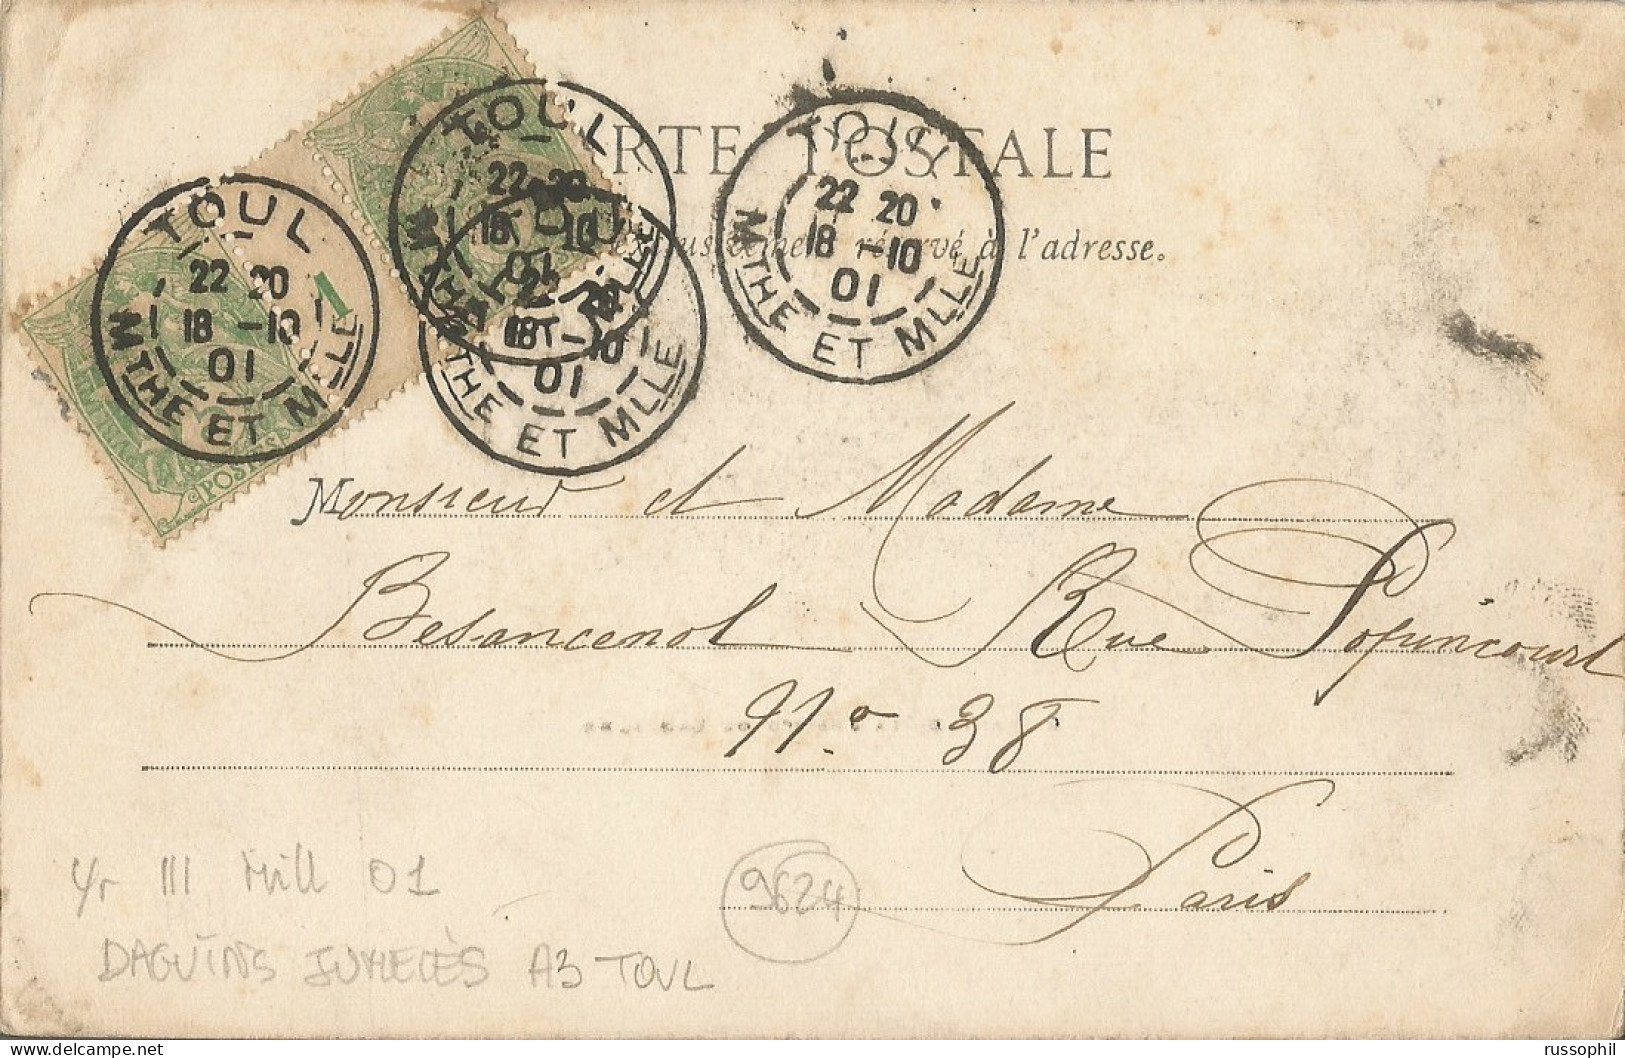 RTE POSTALE
réservé à l'adresse.
TOUL
22 20
18 -10
01
MTHE ET MLLE
1
TOUL
22 20
18 10
01
MTHE ET MLLE
22
18 -10
01
THE ET MLLE
22 20
18 -10
01
MTHE ET MLLE
POS
Monsieur et Madame
Besancenot Rue Popincourt
No 38
Paris
Yr III Mill 01
9624
DAGUINS JUMELÈS A3 TOUL
russophil